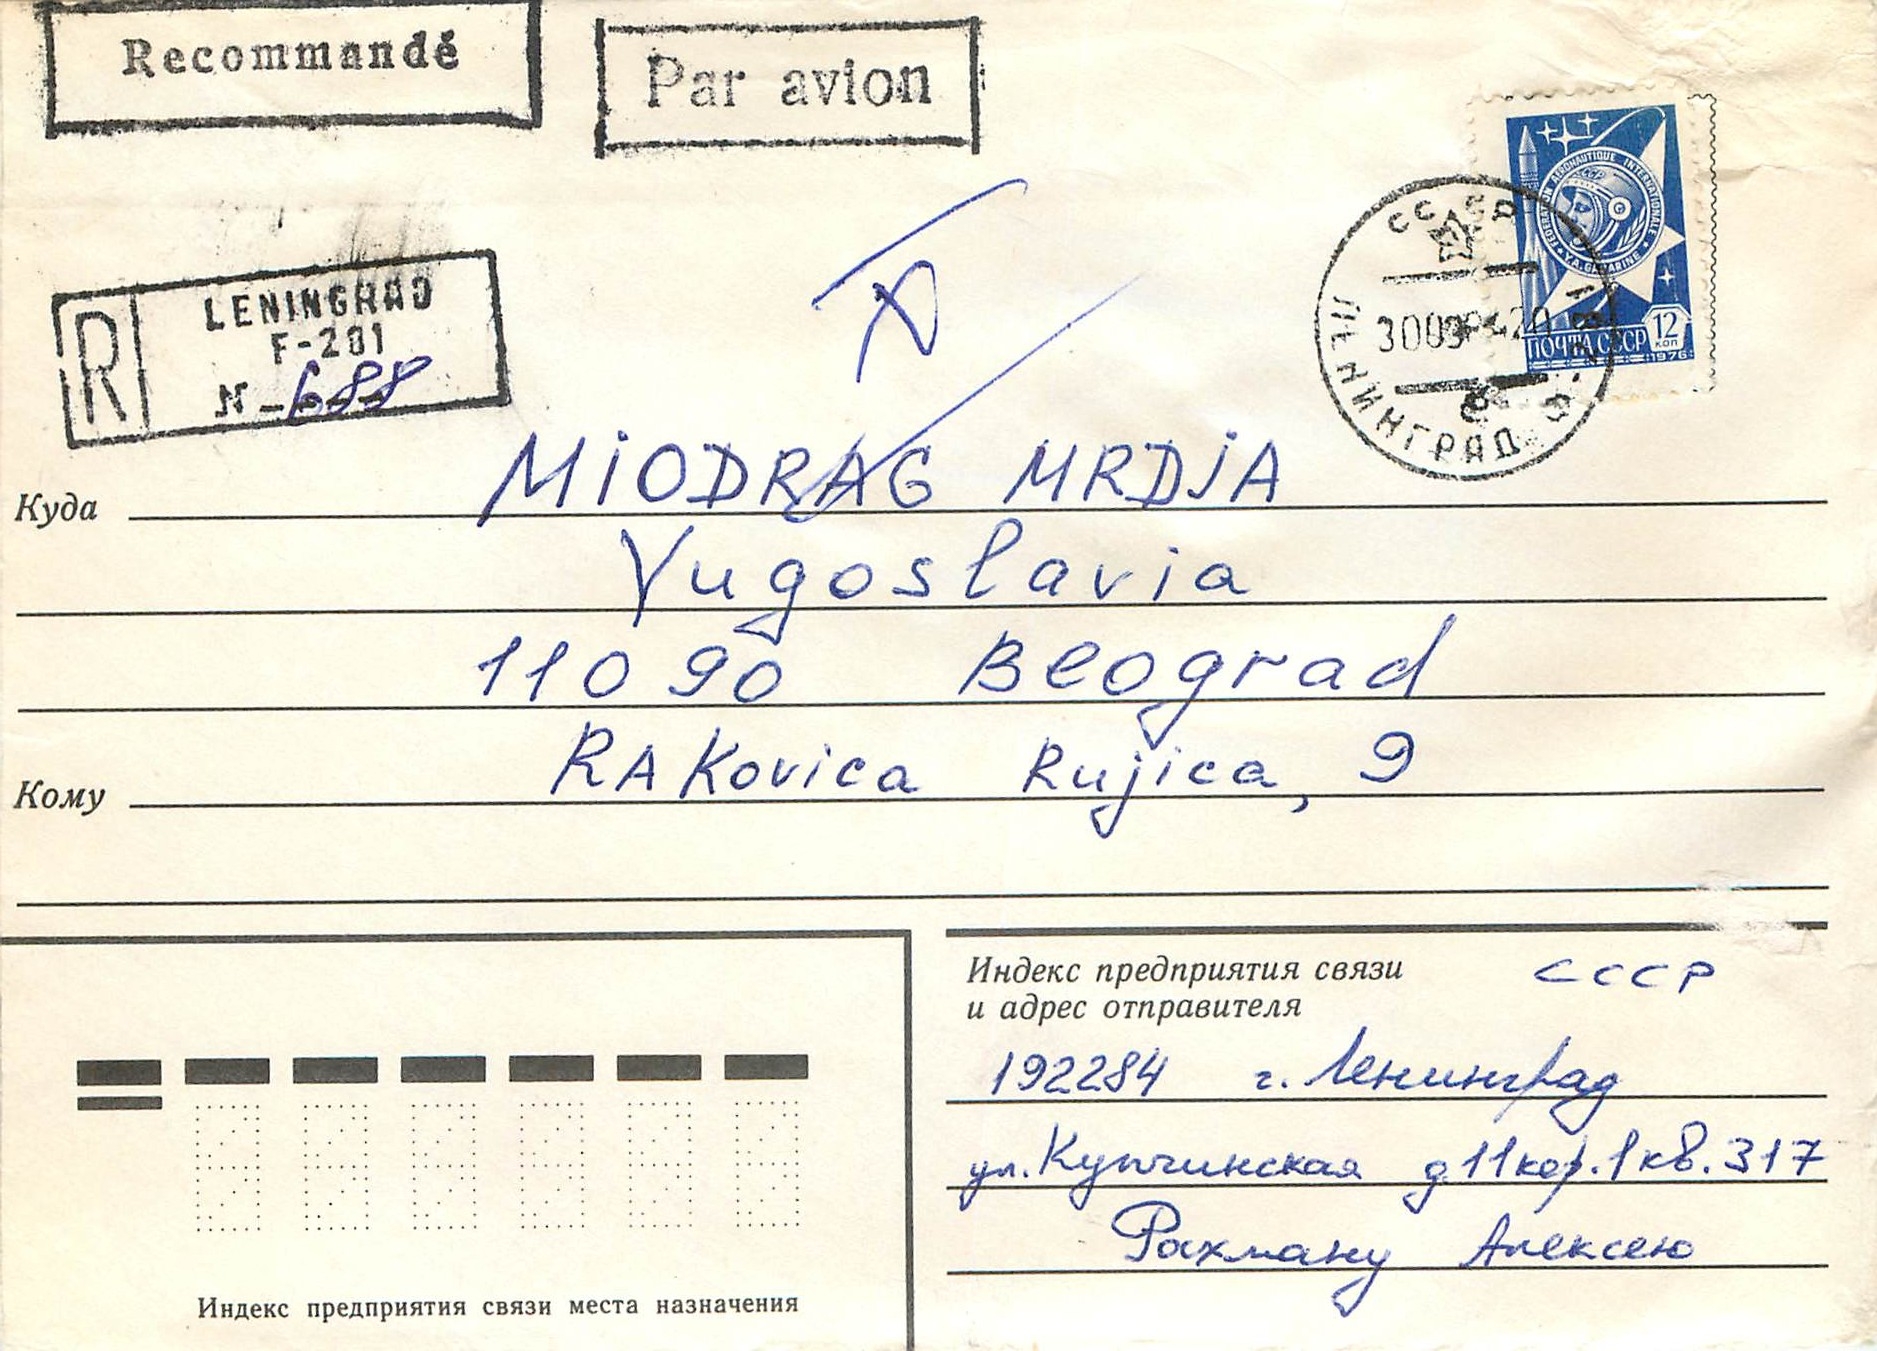 Recommandé
Par avion
R
LENINGRAD
F-201
N-688
FEDERATION AERONAUTIQUE INTERNATIONALE
СССР
Y.A.GAGARINE
ПОЧТА СССР
12
КОП
1976
СССР
ЛЕНИНГРАД
MIODRAG MRDJA
Куда
Yugoslavia
11090 Beograd
RAKovica Rujica, 9
Кому
Индекс предприятия связи
и адрес отправителя
СССР
192284 г. Ленинград
ул. Купчинская д 11 кор. 1 кв. 317
Рахману Алексею
Индекс предприятия связи места назначения